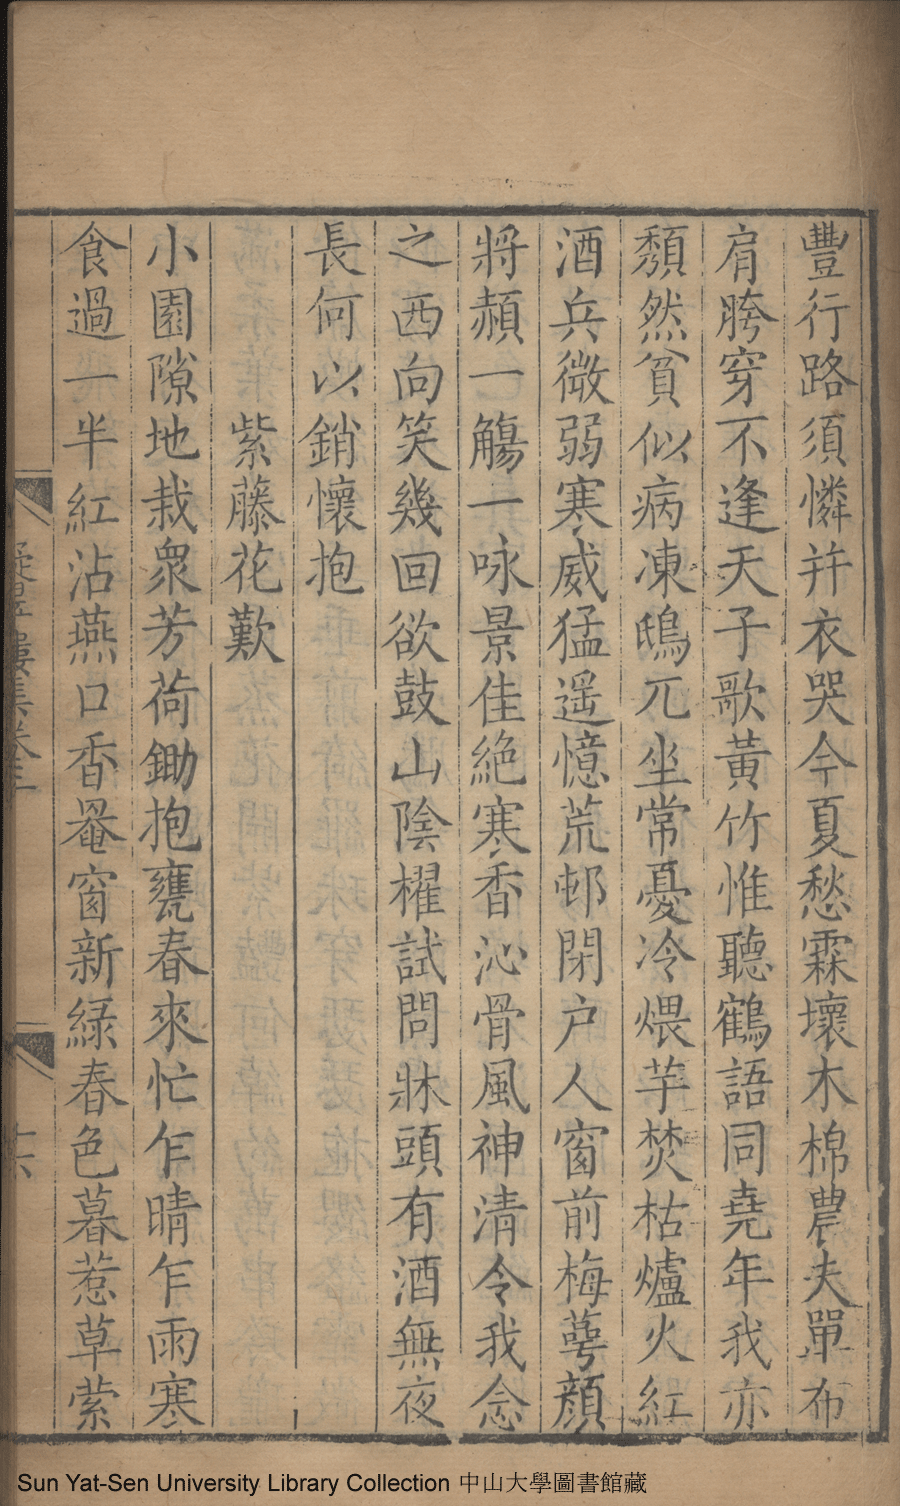 豐行路須憐幷衣哭今夏愁霖壞木棉農夫單布
肩胯穿不逢天子歌黃竹惟聽鶴語同堯年我亦
頽然貧似病凍鴟兀坐常憂冷煨芋焚枯爐火紅
酒兵微弱寒威猛遥憶荒邨閉户人窗前梅蕚顔
將頳一觴一咏景佳絶寒香沁骨風神清令我念
之西向笑幾回欲鼓山陰櫂試問牀頭有酒無夜
長何以銷懷抱
紫藤花歎
小園隙地栽衆芳荷鋤抱甕春來忙乍晴乍雨寒
食過一半紅沾燕口香罨窗新緑春色暮惹草縈
樓集卷
六
Sun Yat-Sen University Library Collection 中山大學圖書館藏